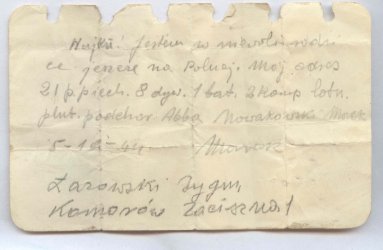 Majka! Jestem w niewoli rodzi
ce jeszcze na Polnej. Mój adres
21 p piech. 8 dyw. 1 bat. 2 komp lotn.
plut. podchor Abba Nowakowski Marek
5-10-44
Żarowski Zygm.
Komorów Zaciszna 1